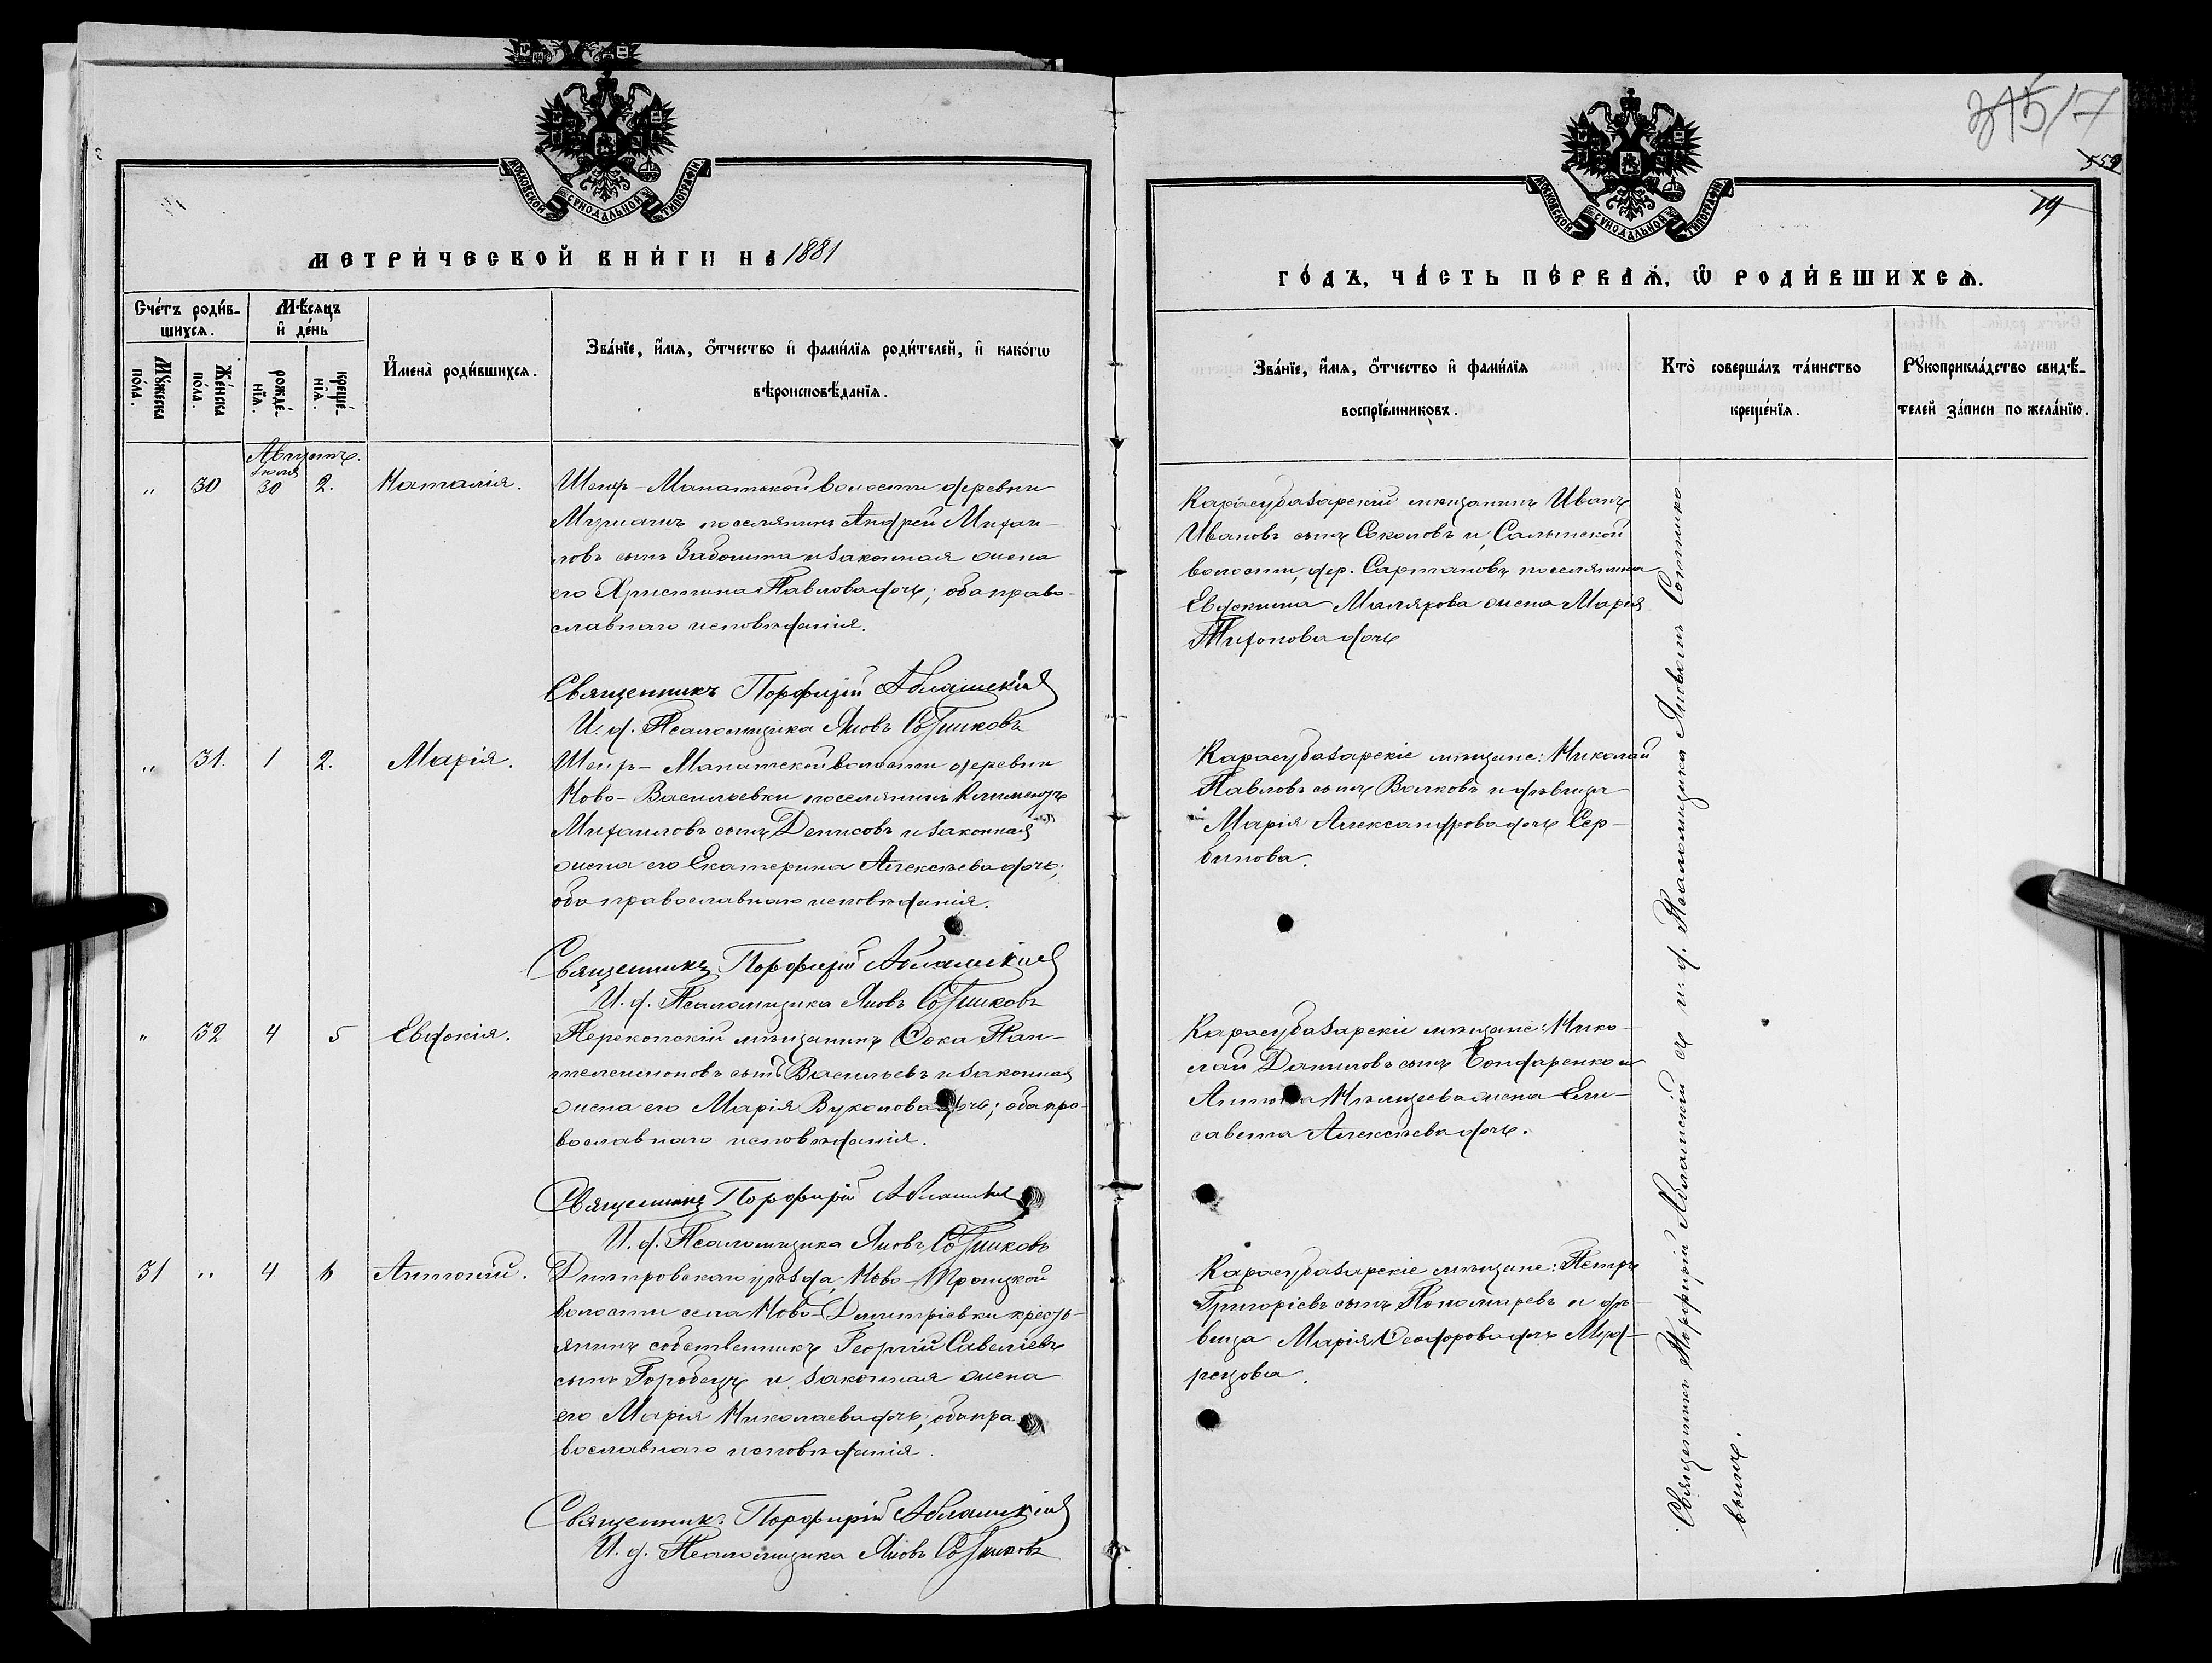 МОСКОВСКОЙ СѴНОДАЛЬНОЙ ТИПОГРАФІИ
МЕТРИ́ЧЕСКОЙ КНИ́ГИ НА 1881
Сче́тъ роди́в-
шихсѧ.
Мѣ́сѧцъ
и҆ де́нь
Мꙋ́жеска
по́ла.
Же́нска
по́ла.
рожде́-
нїѧ.
креще́-
нїѧ.
И҆мена̀ роди́вшихсѧ.
Зва́нїе, и҆́мѧ, ѻ҆́тчество и҆ фами́лїѧ роди́телей, и҆ како́гѡ
вѣроисповѣ́данїѧ.
Августъ.
„ 30 Іюля 30 2. Наталія.
Шеихъ-Манатской волости деревни
поселянинъ Андрей Михаи-
ловъ сынъ и законная жена
его Христина Павлова дочь; оба право-
славнаго исповѣданія.
Священникъ Порфирій
И. д. Псаломщика Яковъ Сотниковъ
„ 31. 1 2. Марія.
Шеихъ-Манатской волости деревни
Ново-Васильевки поселянинъ Климентъ
Михаиловъ сынъ Денисовъ и законная
жена его Екатерина Алексѣева дочь;
оба православнаго исповѣданія.
Священникъ Порфирій
И. д. Псаломщика Яковъ Сотниковъ
„ 32 4 5 Евдокія.
Перекопскій мѣщанинъ Ѳока Пан-
телеимоновъ сынъ Васильевъ и законная
жена его Марія Вуколова дочь; оба пра-
вославнаго исповѣданія.
Священникъ Порфирій
И. д. Псаломщика Яковъ Сотниковъ
31 „ 4 6 Антоній.
Днѣпровскаго уѣзда, Ново-Троицкой
волости села Ново-Димитріевки кресть-
янинъ собственникъ Георгій Савеліевъ
сынъ Горобецъ и законная жена
его Марія Николаева дочь; оба пра-
вославнаго исповѣданія.
Священникъ Порфирій
И. д. Псаломщика Яковъ Сотниковъ
315/7
559
19
МОСКОВСКОЙ СѴНОДАЛЬНОЙ ТИПОГРАФІИ
ГО́ДЪ, ЧА́СТЬ ПЕ́РВАѦ, Ѡ҆ РОДИ́ВШИХСѦ.
Зва́нїе, и҆́мѧ, ѻ҆́тчество и҆ фами́лїѧ
воспрїе́мниковъ.
Кто̀ соверша́лъ та́инство
креще́нїѧ.
Рꙋкоприкла́дство свидѣ́-
телей за́писи по жела́нїю.
Карасубазарскій мѣщанинъ Иванъ
Ивановъ сынъ Соколовъ и, Салынской
волости, дер. Сартановъ поселянина
Евдокима Малярова жена Марія
Тихонова дочь
Карасубазарскіе мѣщане: Николай
Павловъ сынъ Волковъ и дѣвица
Марія Александрова дочь Сер-
бинова.
Карасубазарскіе мѣщане: Нико-
лай Даниловъ сынъ Бондаренко и
Антона жена Ели-
савета Алексѣева дочь.
Карасубазарскіе мѣщане: Петръ
Григоріевъ сынъ Пономаревъ и дѣ-
вица Марія Ѳеодорова дочь
Священникъ Порфирій съ и. д. Псаломщика Яковомъ Сотнико-
вымъ.